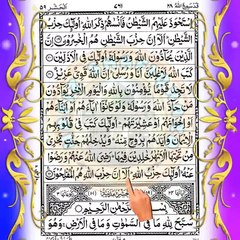 اِسْتَحْوَذَ عَلَيْهِمُ الشَّيْطٰنُ فَاَنْسٰىهُمْ ذِكْرَ اللّٰهِ اُولٰٓئِكَ حِزْبُ
الشَّيْطٰنِ اَلَآ اِنَّ حِزْبَ الشَّيْطٰنِ هُمُ الْخٰسِرُوْنَ اِنَّ
الَّذِيْنَ يُحَآدُّوْنَ اللّٰهَ وَرَسُوْلَهٗٓ اُولٰٓئِكَ فِي الْاَذَلِّيْنَ
كَتَبَ اللّٰهُ لَاَغْلِبَنَّ اَنَا وَرُسُلِيْ اِنَّ اللّٰهَ قَوِيٌّ عَزِيْزٌ
لَا تَجِدُ قَوْمًا يُّؤْمِنُوْنَ بِاللّٰهِ وَالْيَوْمِ الْاٰخِرِ يُوَآدُّوْنَ
مَنْ حَآدَّ اللّٰهَ وَرَسُوْلَهٗ وَلَوْ كَانُوْٓا اٰبَآءَهُمْ اَوْ اَبْنَآءَهُمْ
اَوْ اِخْوَانَهُمْ اَوْ عَشِيْرَتَهُمْ اُولٰٓئِكَ كَتَبَ فِيْ قُلُوْبِهِمُ
الْاِيْمَانَ وَاَيَّدَهُمْ بِرُوْحٍ مِّنْهُ وَيُدْخِلُهُمْ جَنّٰتٍ تَجْرِيْ
مِنْ تَحْتِهَا الْاَنْهٰرُ خٰلِدِيْنَ فِيْهَا رَضِيَ اللّٰهُ عَنْهُمْ وَرَضُوْا
عَنْهُ اُولٰٓئِكَ حِزْبُ اللّٰهِ اَلَآ اِنَّ حِزْبَ اللّٰهِ هُمُ الْمُفْلِحُوْنَ
الرَّحْمٰنِ الرَّحِيْمِ
سَبَّحَ لِلّٰهِ مَا فِي السَّمٰوٰتِ وَمَا فِي الْاَرْضِ وَهُوَ